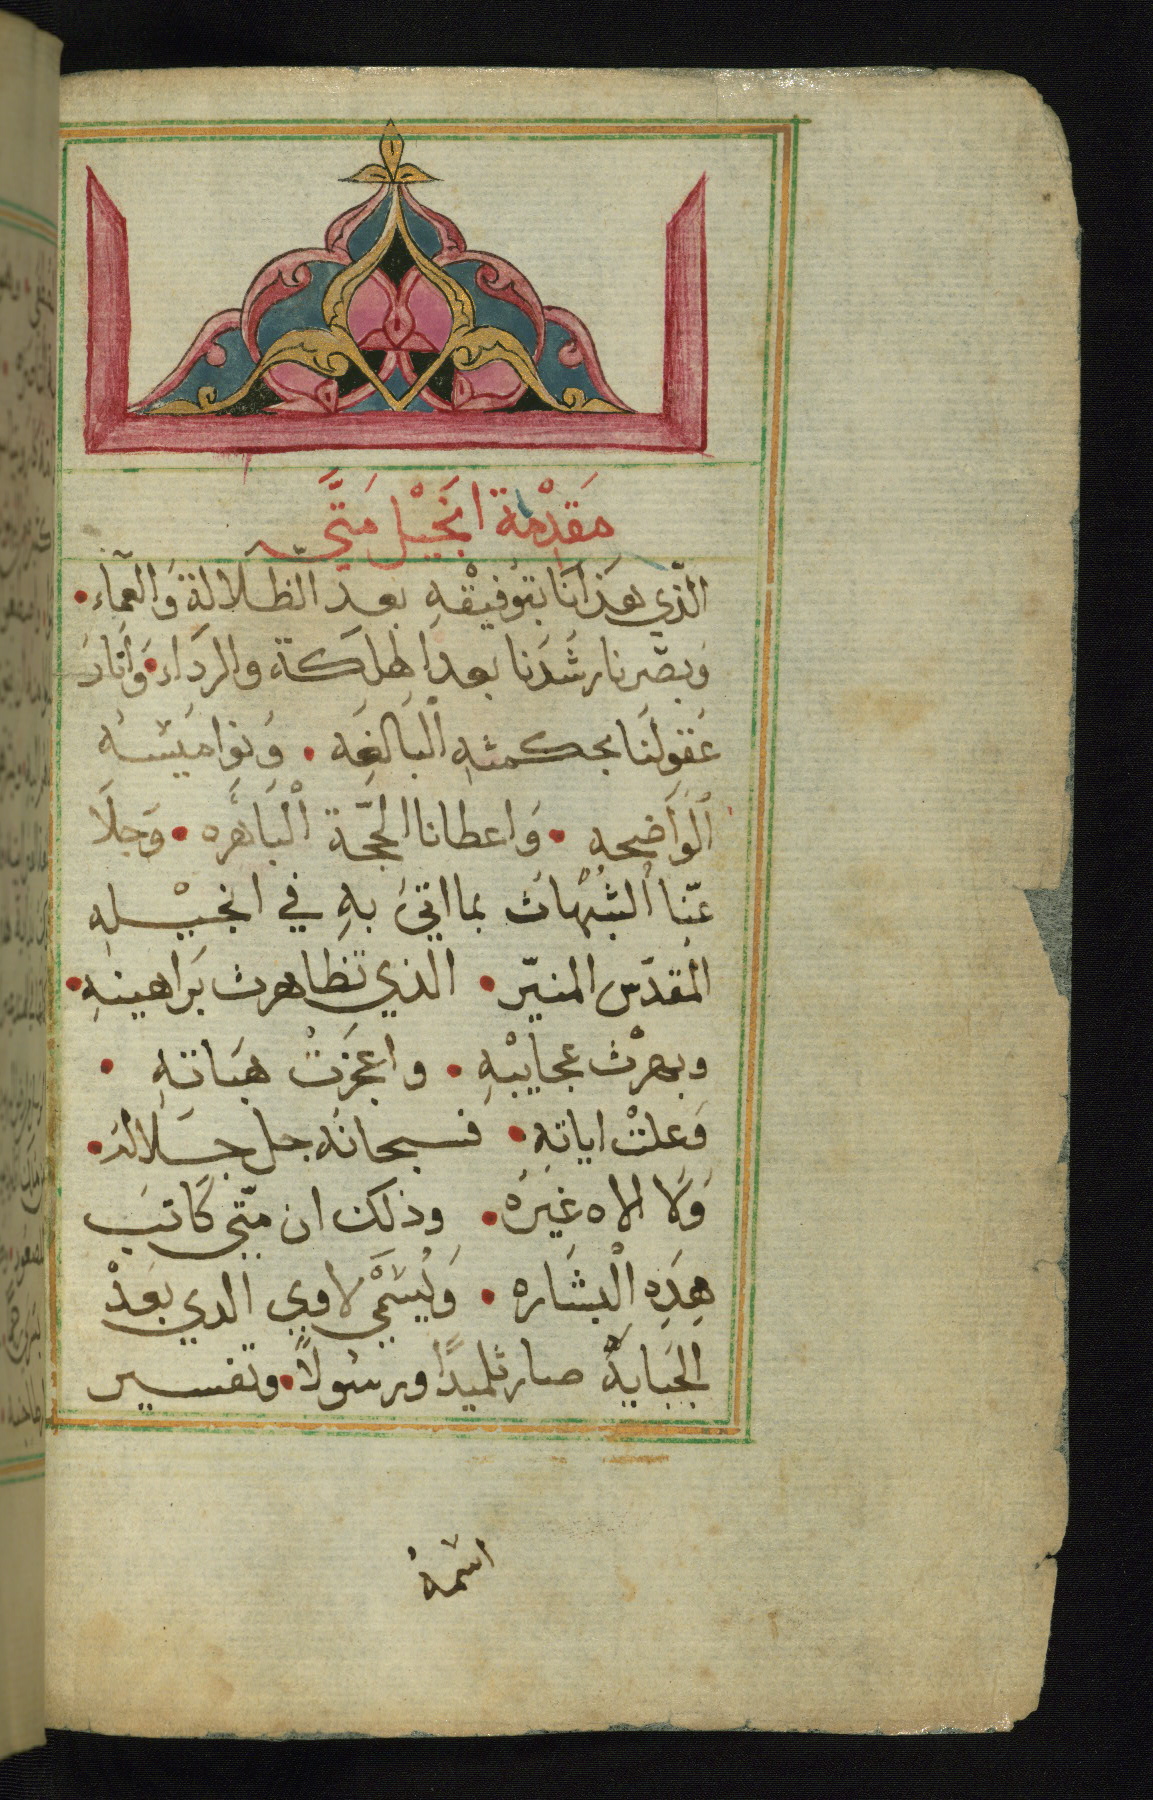 مَقدِمْة انجَيْل مَتَّى
الّذي هَذانَا بتوفيْقهِ بعد الظلالة وَالعمآء •
وَبصّرنا رشَدَنا بعد الهلكَة والرداء • وَانارَ
عَقولَنَا بحكمثهِ الْبَالغَه • وَنواميسَه
الْوَاضحه • وَاعطانا الحجّة الْباهرَه • وَجلَا
عَنّا الشبُهُاث بما اتىَ بهِ في انجيْلهِ
المقدّس المنيّر • الذي تظاهرث بَراهينهِ •
وبهرْث عجايبْهِ • واعجَزتْ هبَاتهِ •
وَعلتْ اياتهِ • فسبحانَه جل جَلالهُ •
وَلا الاه غيرَه • وذلكَ ان متّى كَاتبَ
هِدَهِ الْبشَاره • وَيُسَمْى لاوي الدي بعَدْ
الجَبايهّ صار تلميدًا ورسُولاً • وتفسير
اسْمهُ